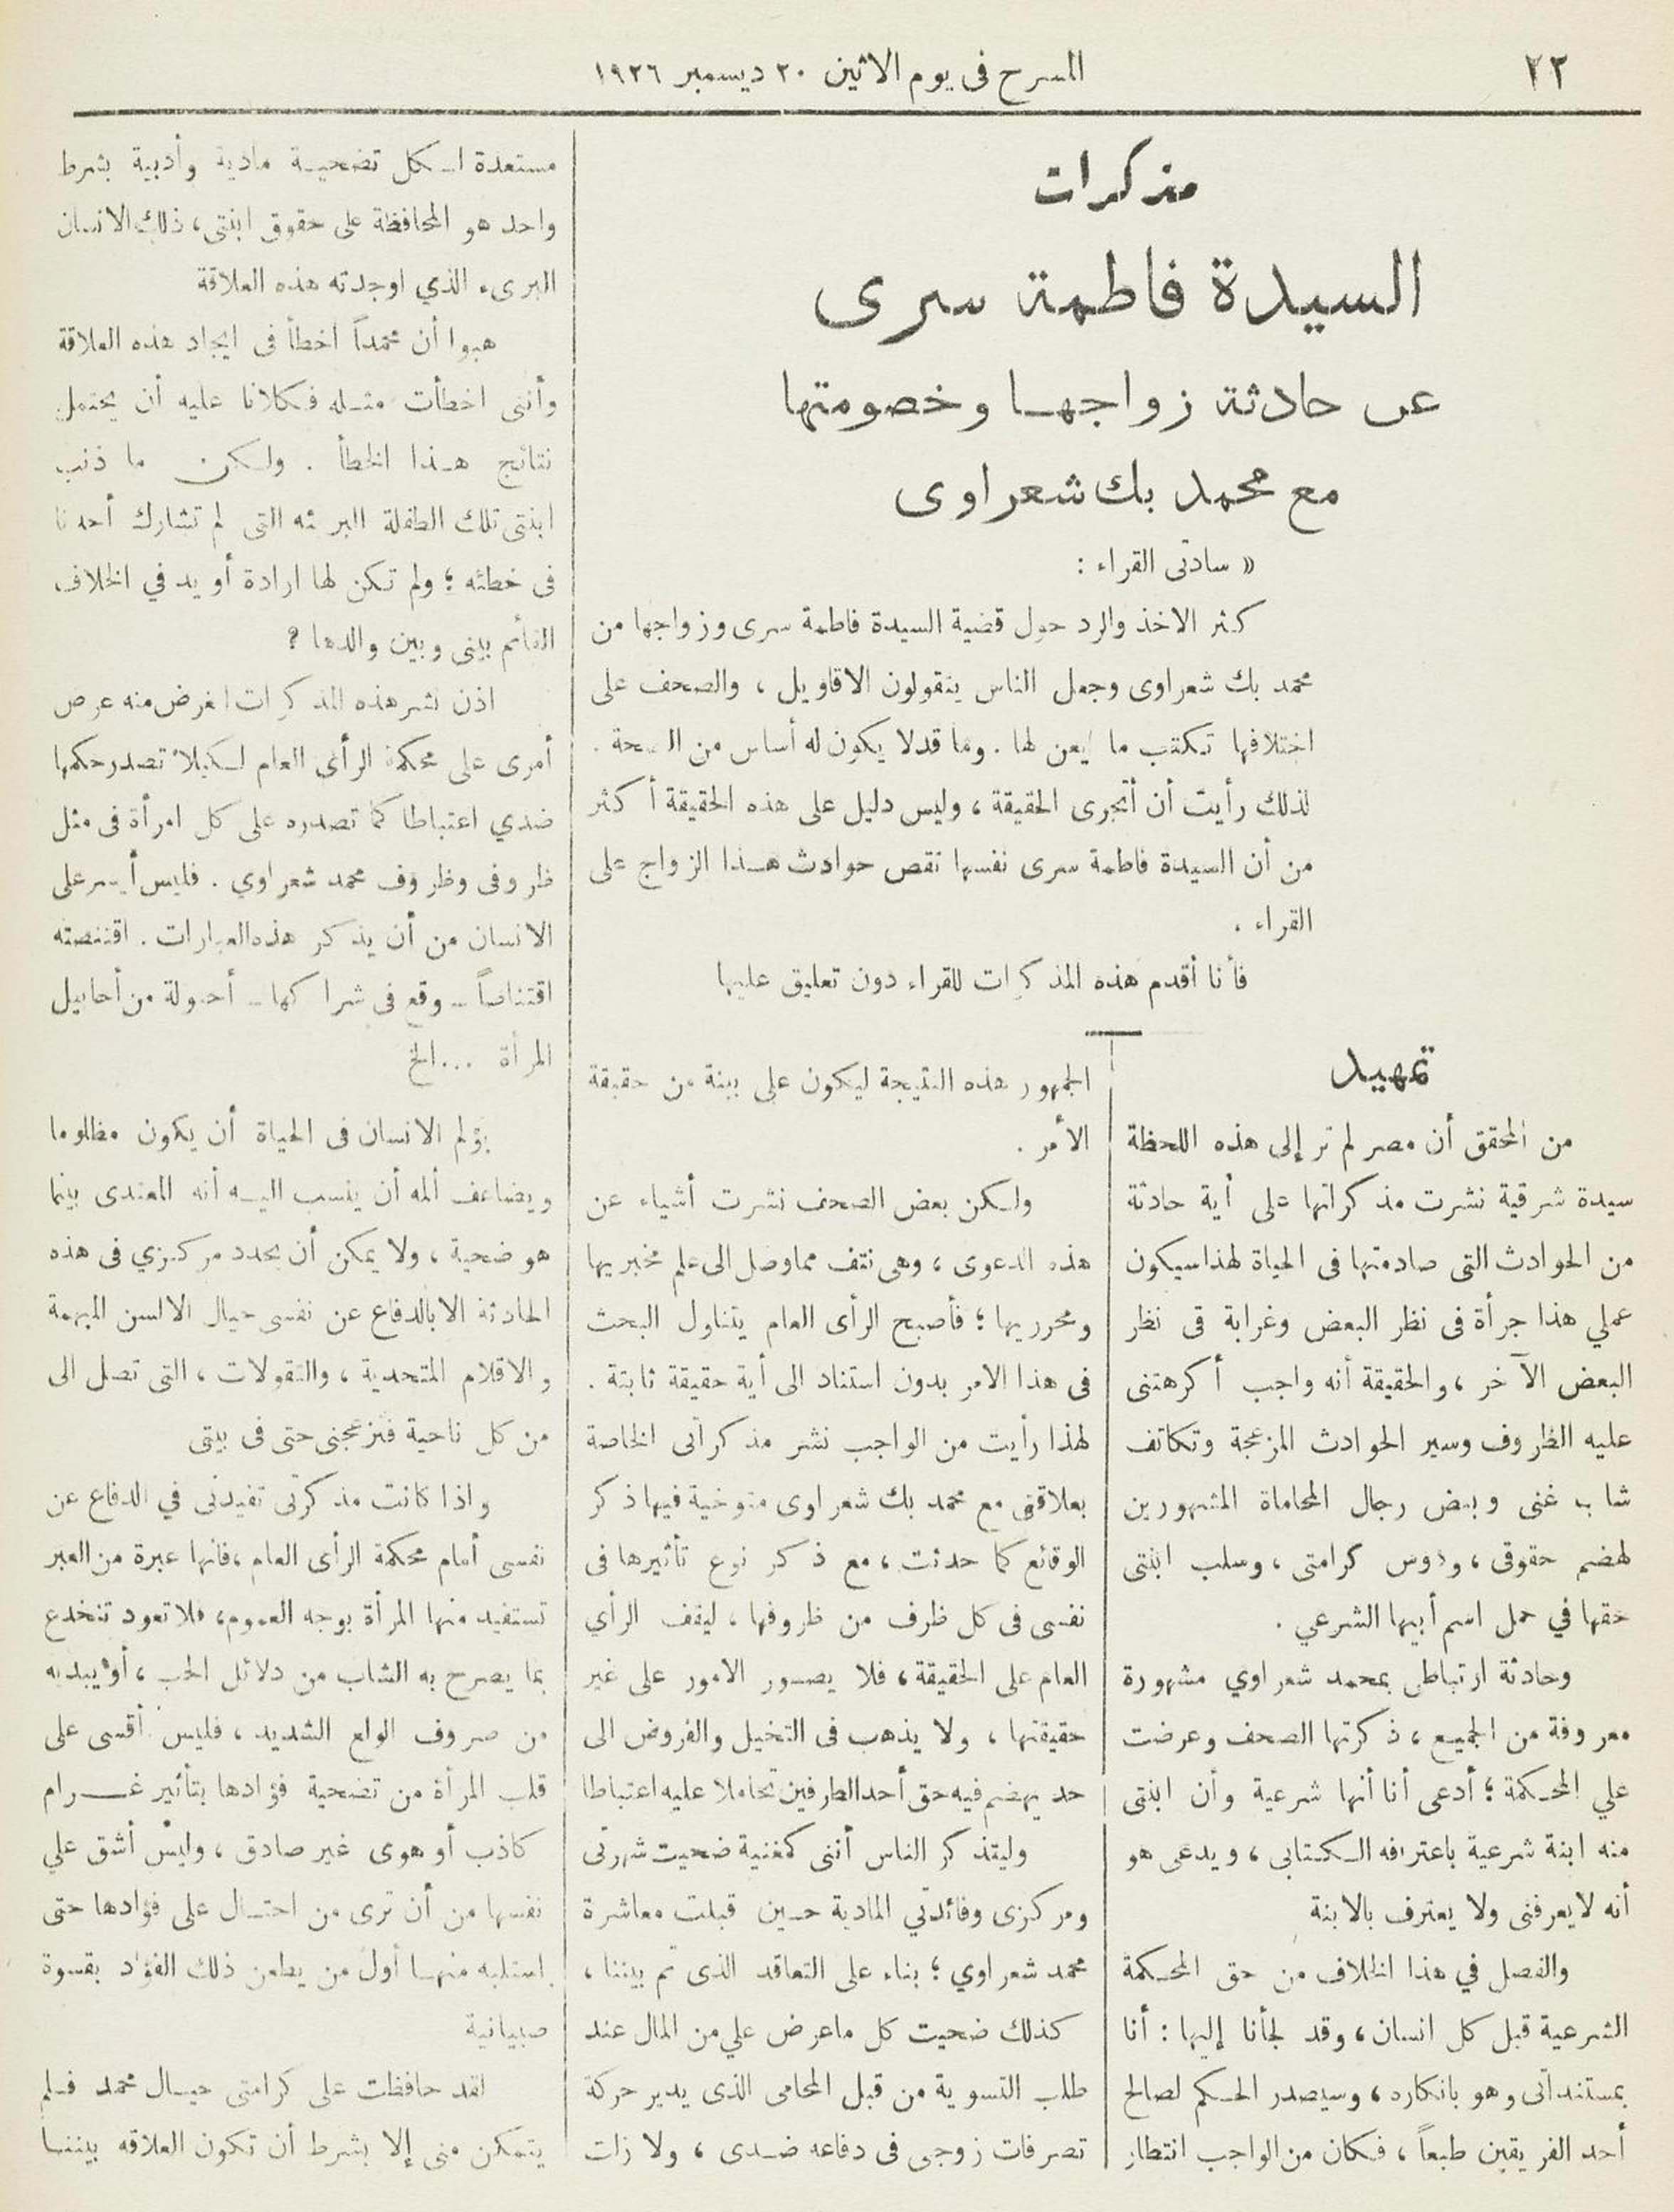 ٢٢
المسرح فى يوم الاثنين ٢٠ ديسمبر ١٩٢٦
مذكرات
السيدة فاطمة سرى
عن حادثة زواجها وخصومتها
مع محمد بك شعراوى
« سادتى القراء :
كثر الاخذ والرد حول قضية السيدة فاطمة سرى وزواجها من
محمد بك شعراوى وجعل الناس يتقولون الاقاويل ، والصحف على
اختلافها تكتب ما يعن لها . وما قد لا يكون له أساس من الصحة .
لذلك رأيت أن أتحرى الحقيقة ، وليس دليل على هذه الحقيقة أكثر
من أن السيدة فاطمة سرى نفسها تقص حوادث هذا الزواج على
القراء .
فأنا أقدم هذه المذكرات للقراء دون تعليق عليها
تمهيد
من المحقق أن مصر لم تر إلى هذه اللحظة
سيدة شرقية نشرت مذكراتها على أية حادثة
من الحوادث التى صادمتها فى الحياة لهذا سيكون
عملي هذا جرأة فى نظر البعض وغرابة فى نظر
البعض الآخر ، والحقيقة أنه واجب أكرهتنى
عليه الظروف وسير الحوادث المزعجة وتكاتف
شاب غنى وبعض رجال المحاماة المشهورين
لهضم حقوقى ، ودوس كرامتى ، وسلب ابنتى
حقها في حمل اسم أبيها الشرعي .
وحادثة ارتباطى بمحمد شعراوي مشهورة
معروفة من الجميع ، ذكرتها الصحف وعرضت
علي المحكمة ؛ أدعى أنا أنها شرعية وأن ابنتى
منه ابنة شرعية باعترافه الكتابى ، ويدعى هو
أنه لايعرفنى ولا يعترف بالابنة
والفصل في هذا الخلاف من حق المحكمة
الشرعية قبل كل انسان ، وقد لجأنا إليها : أنا
بمستنداتى وهو بانكاره ، وسيصدر الحكم لصالح
أحد الفريقين طبعاً ، فكان من الواجب انتظار
الجمهور هذه النتيجة ليكون على بينة من حقيقة
الأمر .
ولكن بعض الصحف نشرت أشياء عن
هذه الدعوى ، وهى نتف مما وصل الى علم مخبريها
ومحرريها ؛ فأصبح الرأى العام يتناول البحث
فى هذا الامر بدون استناد الى أية حقيقة ثابتة .
لهذا رأيت من الواجب نشر مذكراتى الخاصة
بعلاقتى مع محمد بك شعراوى متوخية فيها ذكر
الوقائع كما حدثت ، مع ذكر نوع تأثيرها فى
نفسى فى كل ظرف من ظروفها ، ليقف الرأي
العام على الحقيقة ، فلا يصور الامور على غير
حقيقتها ، ولا يذهب فى التخيل والفروض الى
حد يهضم فيه حق أحد الطرفين تحاملا عليه اعتباطا
وليتذكر الناس أننى كمغنية ضحيت شهرتى
ومركزى وفائدتي المادية حين قبلت معاشرة
محمد شعراوي ؛ بناء على التعاقد الذى تم بيننا ،
كذلك ضحيت كل ماعرض علي من المال عند
طلب التسوية من قبل المحامى الذى يدير حركة
تصرفات زوجى فى دفاعه ضدى ، ولا زلت
مستعدة لكل تضحية مادية وأدبية بشرط
واحد هو المحافظة على حقوق ابنتى ، ذلك الانسان
البرىء الذي اوجدته هذه العلاقة
هبوا أن محمداً اخطأ فى ايجاد هذه العلاقة
وأننى اخطأت مثله فكلانا عليه أن يحتمل
نتائج هذا الخطأ . ولكن ما ذنب
ابنتى تلك الطفلة البرئه التى لم تشارك أحدنا
فى خطئه ؛ ولم تكن لها ارادة أو يد في الخلاف
القائم بينى وبين والدها ؟
اذن نشر هذه المذكرات الغرض منه عرض
أمرى على محكمة الرأى العام لكيلا تصدر حكمها
ضدي اعتباطا كما تصدره على كل امرأة فى مثل
ظروفى وظروف محمد شعراوي . فليس أيسر على
الانسان من أن يذكر هذه العبارات . اقتنصته
اقتناصاً ـ وقع فى شراكها ـ أحبولة من أحابيل
المرأة ... الخ
يؤلم الانسان فى الحياة أن يكون مظلوما
ويضاعف ألمه أن ينسب اليه أنه المعتدى بينما
هو ضحية ، ولا يمكن أن يحدد مركزي فى هذه
الحادثة الا بالدفاع عن نفسى حيال الالسن المبهمة
والاقلام المتحدية ، والتقولات ، التى تصل الى
من كل ناحية فتزعجنى حتى فى بيتى
واذا كانت مذكرتى تفيدنى في الدفاع عن
نفسى أمام محكمة الرأى العام ، فانها عبرة من العبر
تستفيد منها المرأة بوجه العموم ، فلا تعود تنخدع
بما يصرح به الشاب من دلائل الحب ، أو يبديه
من صروف الولع الشديد ، فليس أقسى على
قلب المرأة من تضحية فؤادها بتأثير غرام
كاذب أو هوى غير صادق ، وليس أشق علي
نفسها من أن ترى من احتال على فؤادها حتى
استلبه منها أول من يطعن ذلك الفؤاد بقسوة
صبيانية
لقد حافظت على كرامتى حيال محمد فلم
يتمكن منى إلا بشرط أن تكون العلاقه بيننا